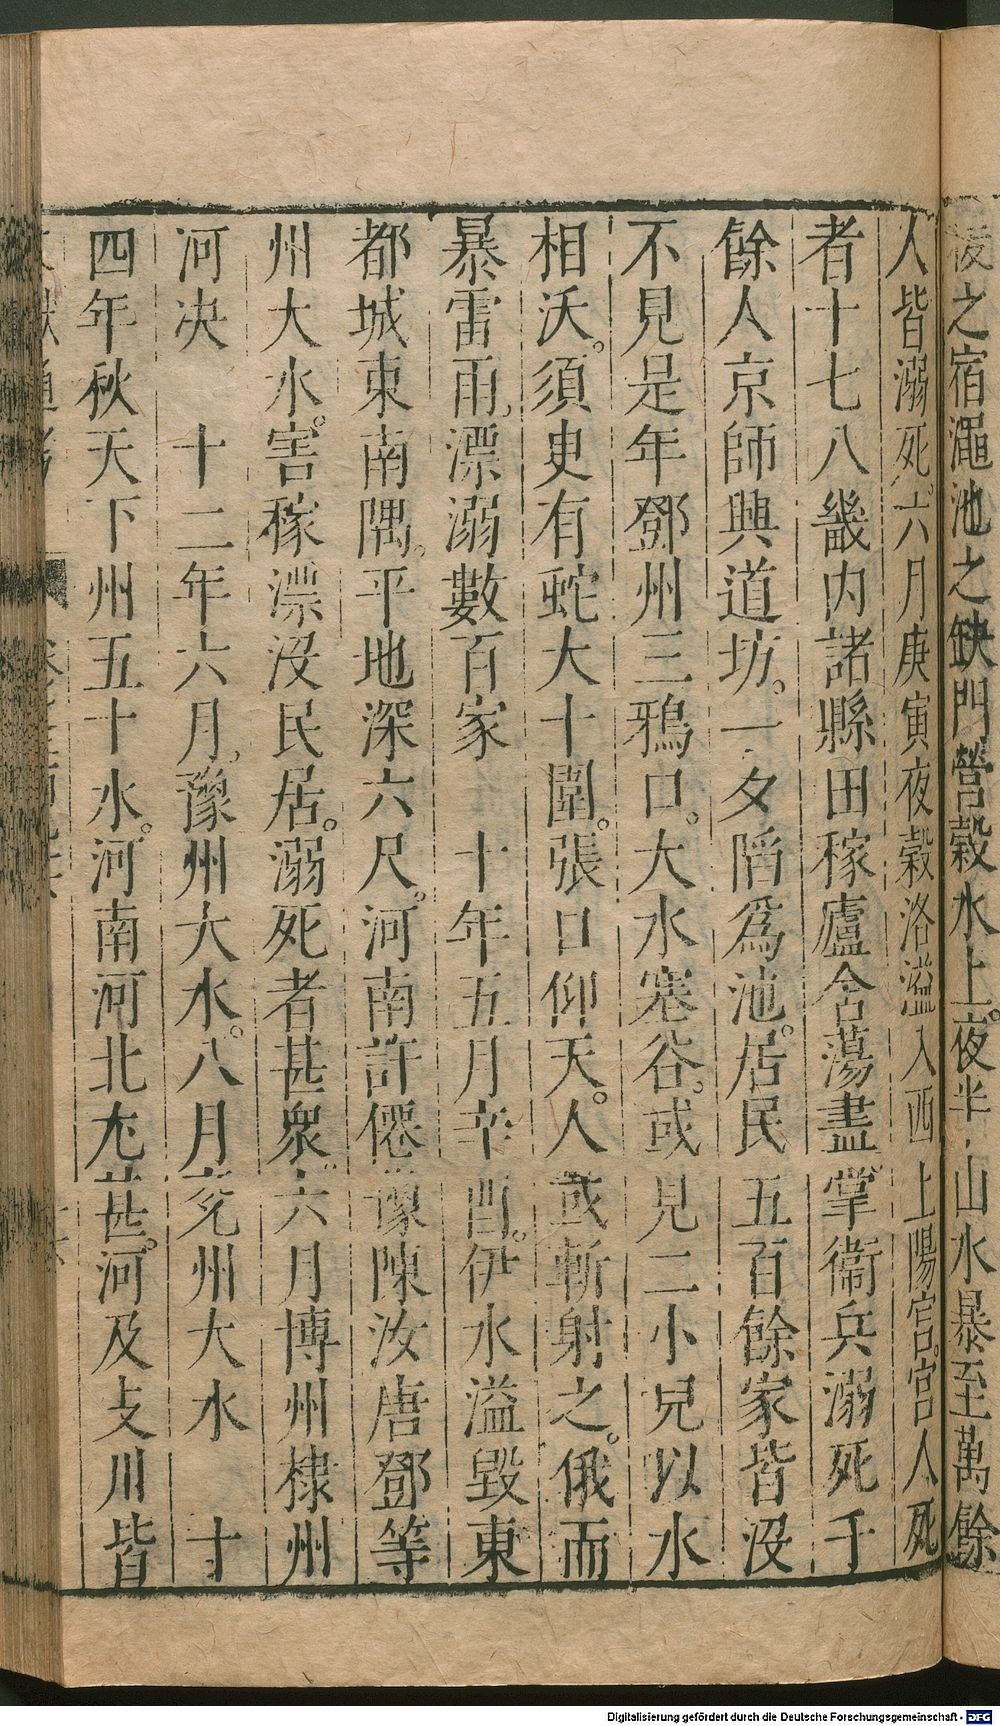 之宿澠池之缺門營穀水上夜半山水暴至萬餘
人皆溺死六月庚寅夜穀洛溢入西上陽宮宮人死
者十七八畿内諸縣田稼廬舍蕩盡掌衞兵溺死千
餘人京師興道坊一夕陷爲池居民五百餘家皆沒
不見是年鄧州三鴉口大水塞谷或見二小兒以水
相沃須臾有蛇大十圍張口仰天人或斬射之俄而
暴雷雨漂溺數百家　十年五月辛酉伊水溢毀東
都城東南隅平地深六尺河南許僊豫陳汝唐鄧等
州大水害稼漂沒民居溺死者甚衆六月博州棣州
河决　十二年六月豫州大水八月兖州大水　十
四年秋天下州五十水河南河北尤甚河及支川皆
Digitalisierung gefördert durch die Deutsche Forschungsgemeinschaft - DFG